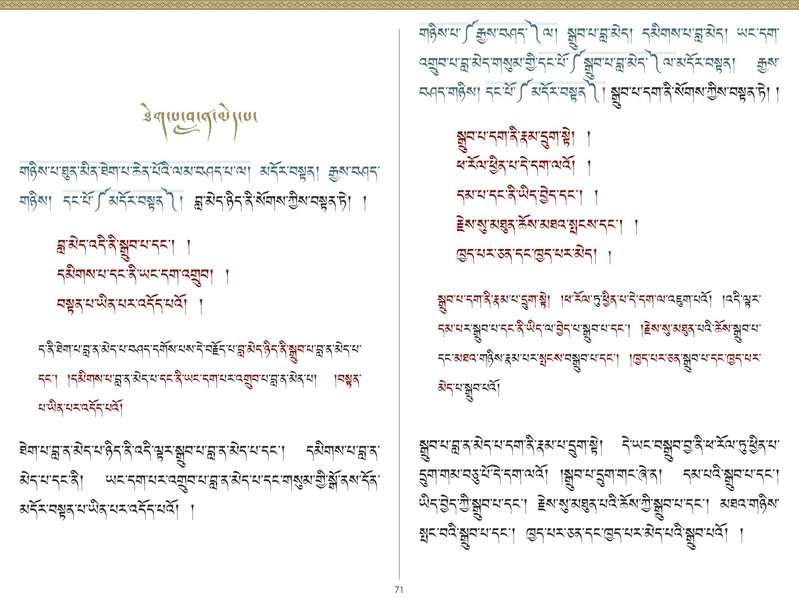 ཐེག་པ་བླ་ན་མེད་པ།
གཉིས་པ་ཐུན་མིན་ཐེག་པ་ཆེན་པོའི་ལམ་བཤད་པ་ལ། མདོར་བསྟན། རྒྱས་བཤད་
གཉིས། དང་པོ་༼མདོར་བསྟན་༽། བླ་མེད་ཉིད་ནི་སོགས་ཀྱིས་བསྟན་ཏེ། །
བླ་མེད་འདི་ནི་སྒྲུབ་པ་དང་། །
དམིགས་པ་དང་ནི་ཡང་དག་འགྲུབ། །
བསྟན་པ་ཡིན་པར་འདོད་པའོ། །
ད་ནི་ཐེག་པ་བླ་ན་མེད་པ་བཤད་དགོས་པས་དེ་བརྗོད་པ་བླ་མེད་ཉིད་ནི་སྒྲུབ་པ་བླ་ན་མེད་པ་
དང་། །དམིགས་པ་བླ་ན་མེད་པ་དང་ནི་ཡང་དག་པར་འགྲུབ་པ་བླ་ན་མེད་པ། །བསྟན་
པ་ཡིན་པར་འདོད་པའོ།
ཐེག་པ་བླ་ན་མེད་པ་ཉིད་ནི་འདི་ལྟར་སྒྲུབ་པ་བླ་ན་མེད་པ་དང་། དམིགས་པ་བླ་ན་
མེད་པ་དང་ནི། ཡང་དག་པར་འགྲུབ་པ་བླ་ན་མེད་པ་དང་གསུམ་གྱི་སྒོ་ནས་དོན་
མདོར་བསྟན་པ་ཡིན་པར་འདོད་པའོ། །
གཉིས་པ་༼རྒྱས་བཤད་༽ལ། སྒྲུབ་པ་བླ་མེད། དམིགས་པ་བླ་མེད། ཡང་དག་
འགྲུབ་པ་བླ་མེད་གསུམ་གྱི་དང་པོ་༼སྒྲུབ་པ་བླ་མེད་༽ལ་མདོར་བསྟན། རྒྱས་
བཤད་གཉིས། དང་པོ་༼མདོར་བསྟན་༽། སྒྲུབ་པ་དག་ནི་སོགས་ཀྱིས་བསྟན་ཏེ། །
སྒྲུབ་པ་དག་ནི་རྣམ་དྲུག་སྟེ། །
ཕ་རོལ་ཕྱིན་པ་དེ་དག་ལའོ། །
དམ་པ་དང་ནི་ཡིད་བྱེད་དང་། །
རྗེས་སུ་མཐུན་ཆོས་མཐའ་སྤངས་དང་། །
ཁྱད་པར་ཅན་དང་ཁྱད་པར་མེད། །
སྒྲུབ་པ་དག་ནི་རྣམ་པ་དྲུག་སྟེ། །ཕ་རོལ་ཏུ་ཕྱིན་པ་དེ་དག་ལ་འཇུག་པའོ། །འདི་ལྟར་
དམ་པར་སྒྲུབ་པ་དང་ནི་ཡིད་ལ་བྱེད་པ་སྒྲུབ་པ་དང་། །རྗེས་སུ་མཐུན་པའི་ཆོས་སྒྲུབ་པ་
དང་མཐའ་གཉིས་རྣམ་པར་སྤངས་བསྒྲུབ་པ་དང་། །ཁྱད་པར་ཅན་སྒྲུབ་པ་དང་ཁྱད་པར་
མེད་པ་སྒྲུབ་པའོ།
སྒྲུབ་པ་བླ་ན་མེད་པ་དག་ནི་རྣམ་པ་དྲུག་སྟེ། དེ་ཡང་བསྒྲུབ་བྱ་ནི་ཕ་རོལ་ཏུ་ཕྱིན་པ་
དྲུག་གམ་བཅུ་པོ་དེ་དག་ལའོ། །སྒྲུབ་པ་དྲུག་གང་ཞེ་ན། དམ་པའི་སྒྲུབ་པ་དང་།
ཡིད་བྱེད་ཀྱི་སྒྲུབ་པ་དང་། རྗེས་སུ་མཐུན་པའི་ཆོས་ཀྱི་སྒྲུབ་པ་དང་། མཐའ་གཉིས་
སྤང་བའི་སྒྲུབ་པ་དང་། ཁྱད་པར་ཅན་དང་ཁྱད་པར་མེད་པའི་སྒྲུབ་པའོ། །
71